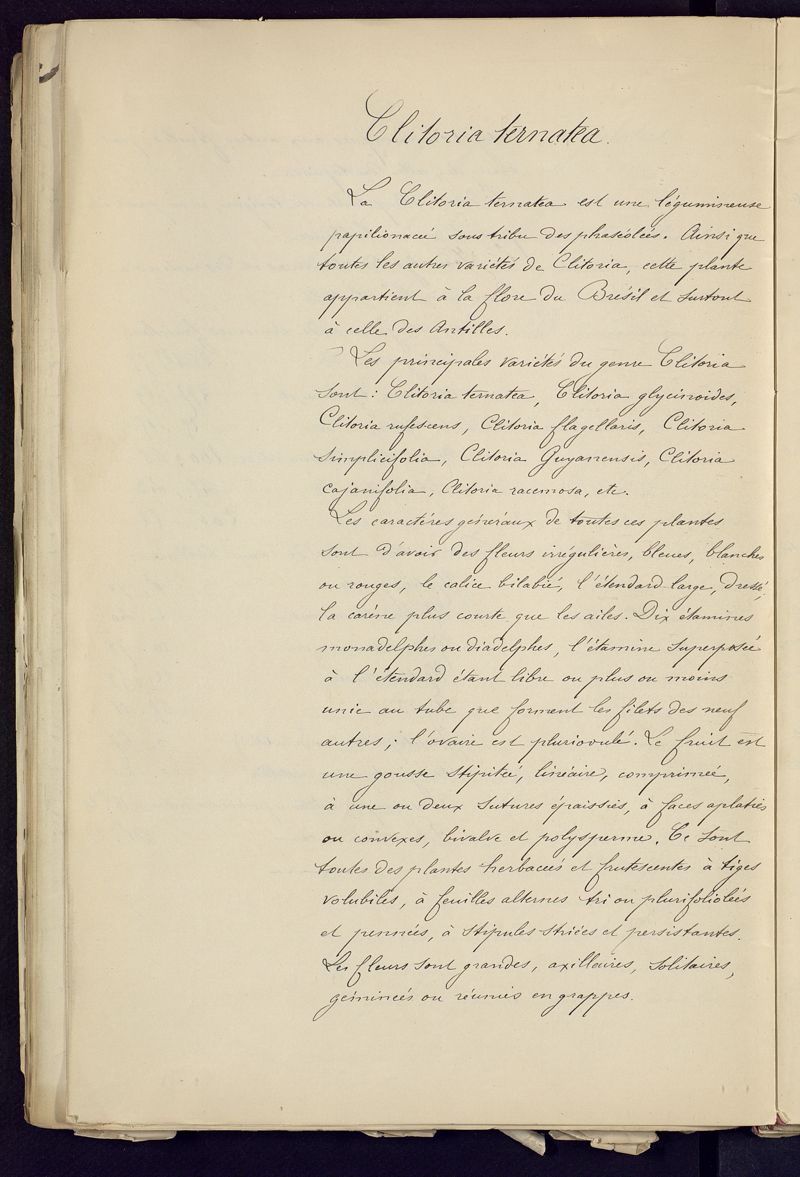 Clitoria ternatea.
La Clitoria ternatea est une légumineuse
papilionacée sous tribu des phaséolées. Ainsi que
toutes les autres variétés de Clitoria, cette plante
appartient à la flore du Brésil et surtout
à celle des Antilles.
Les principales variétés du genre Clitoria
sont : Clitoria ternatea, Clitoria glycinoides,
Clitoria rufescens, Clitoria flagellaris, Clitoria
simplicifolia, Clitoria Guyanensis, Clitoria
cajanifolia, Clitoria racemosa, etc.
Les caractères généraux de toutes ces plantes
sont d'avoir des fleurs irrégulières, bleues, blanches
ou rouges, le calice bilabié, l'étendard large, dressé,
la carène plus courte que les ailes. Dix étamines
monadelphes ou diadelphes, l'étamine superposée
à l'étendard étant libre ou plus ou moins
unie au tube que forment les filets des neuf
autres ; l'ovaire est pluriovulé. Le fruit est
une gousse stipitée, linéaire, comprimée,
à une ou deux sutures épaissies, à faces aplaties
ou convexes, bivalve et polysperme. Ce sont
toutes des plantes herbacées et frutescentes à tiges
volubiles, à feuilles alternes tri ou plurifoliolées
et pennées, à stipules striées et persistantes.
Les fleurs sont grandes, axillaires, solitaires,
géminées ou réunies en grappes.